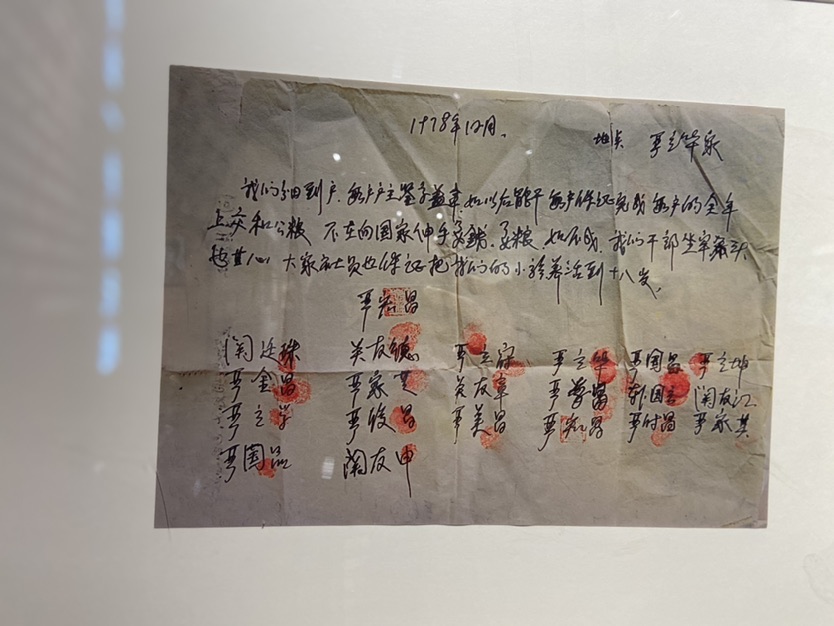 1978年12月。 地点 严立华家
我们分田到户,每户户主签字盖章,如以后能干,每户保证完成每户的全年
上交和公粮 不在向国家伸手要钱要粮,如不成,我们干部坐牢杀头
也甘心,大家社员也保证把我们的小孩养活到十八岁。
严宏昌
关廷珠 关友德 严立符 严立华 严国昌 严立坤
严金昌 严家芝 关友章 严学昌 韩国云 关友江
严立学 严俊昌 严美昌 严宏昌 严付昌 严家其
严国品 关友申